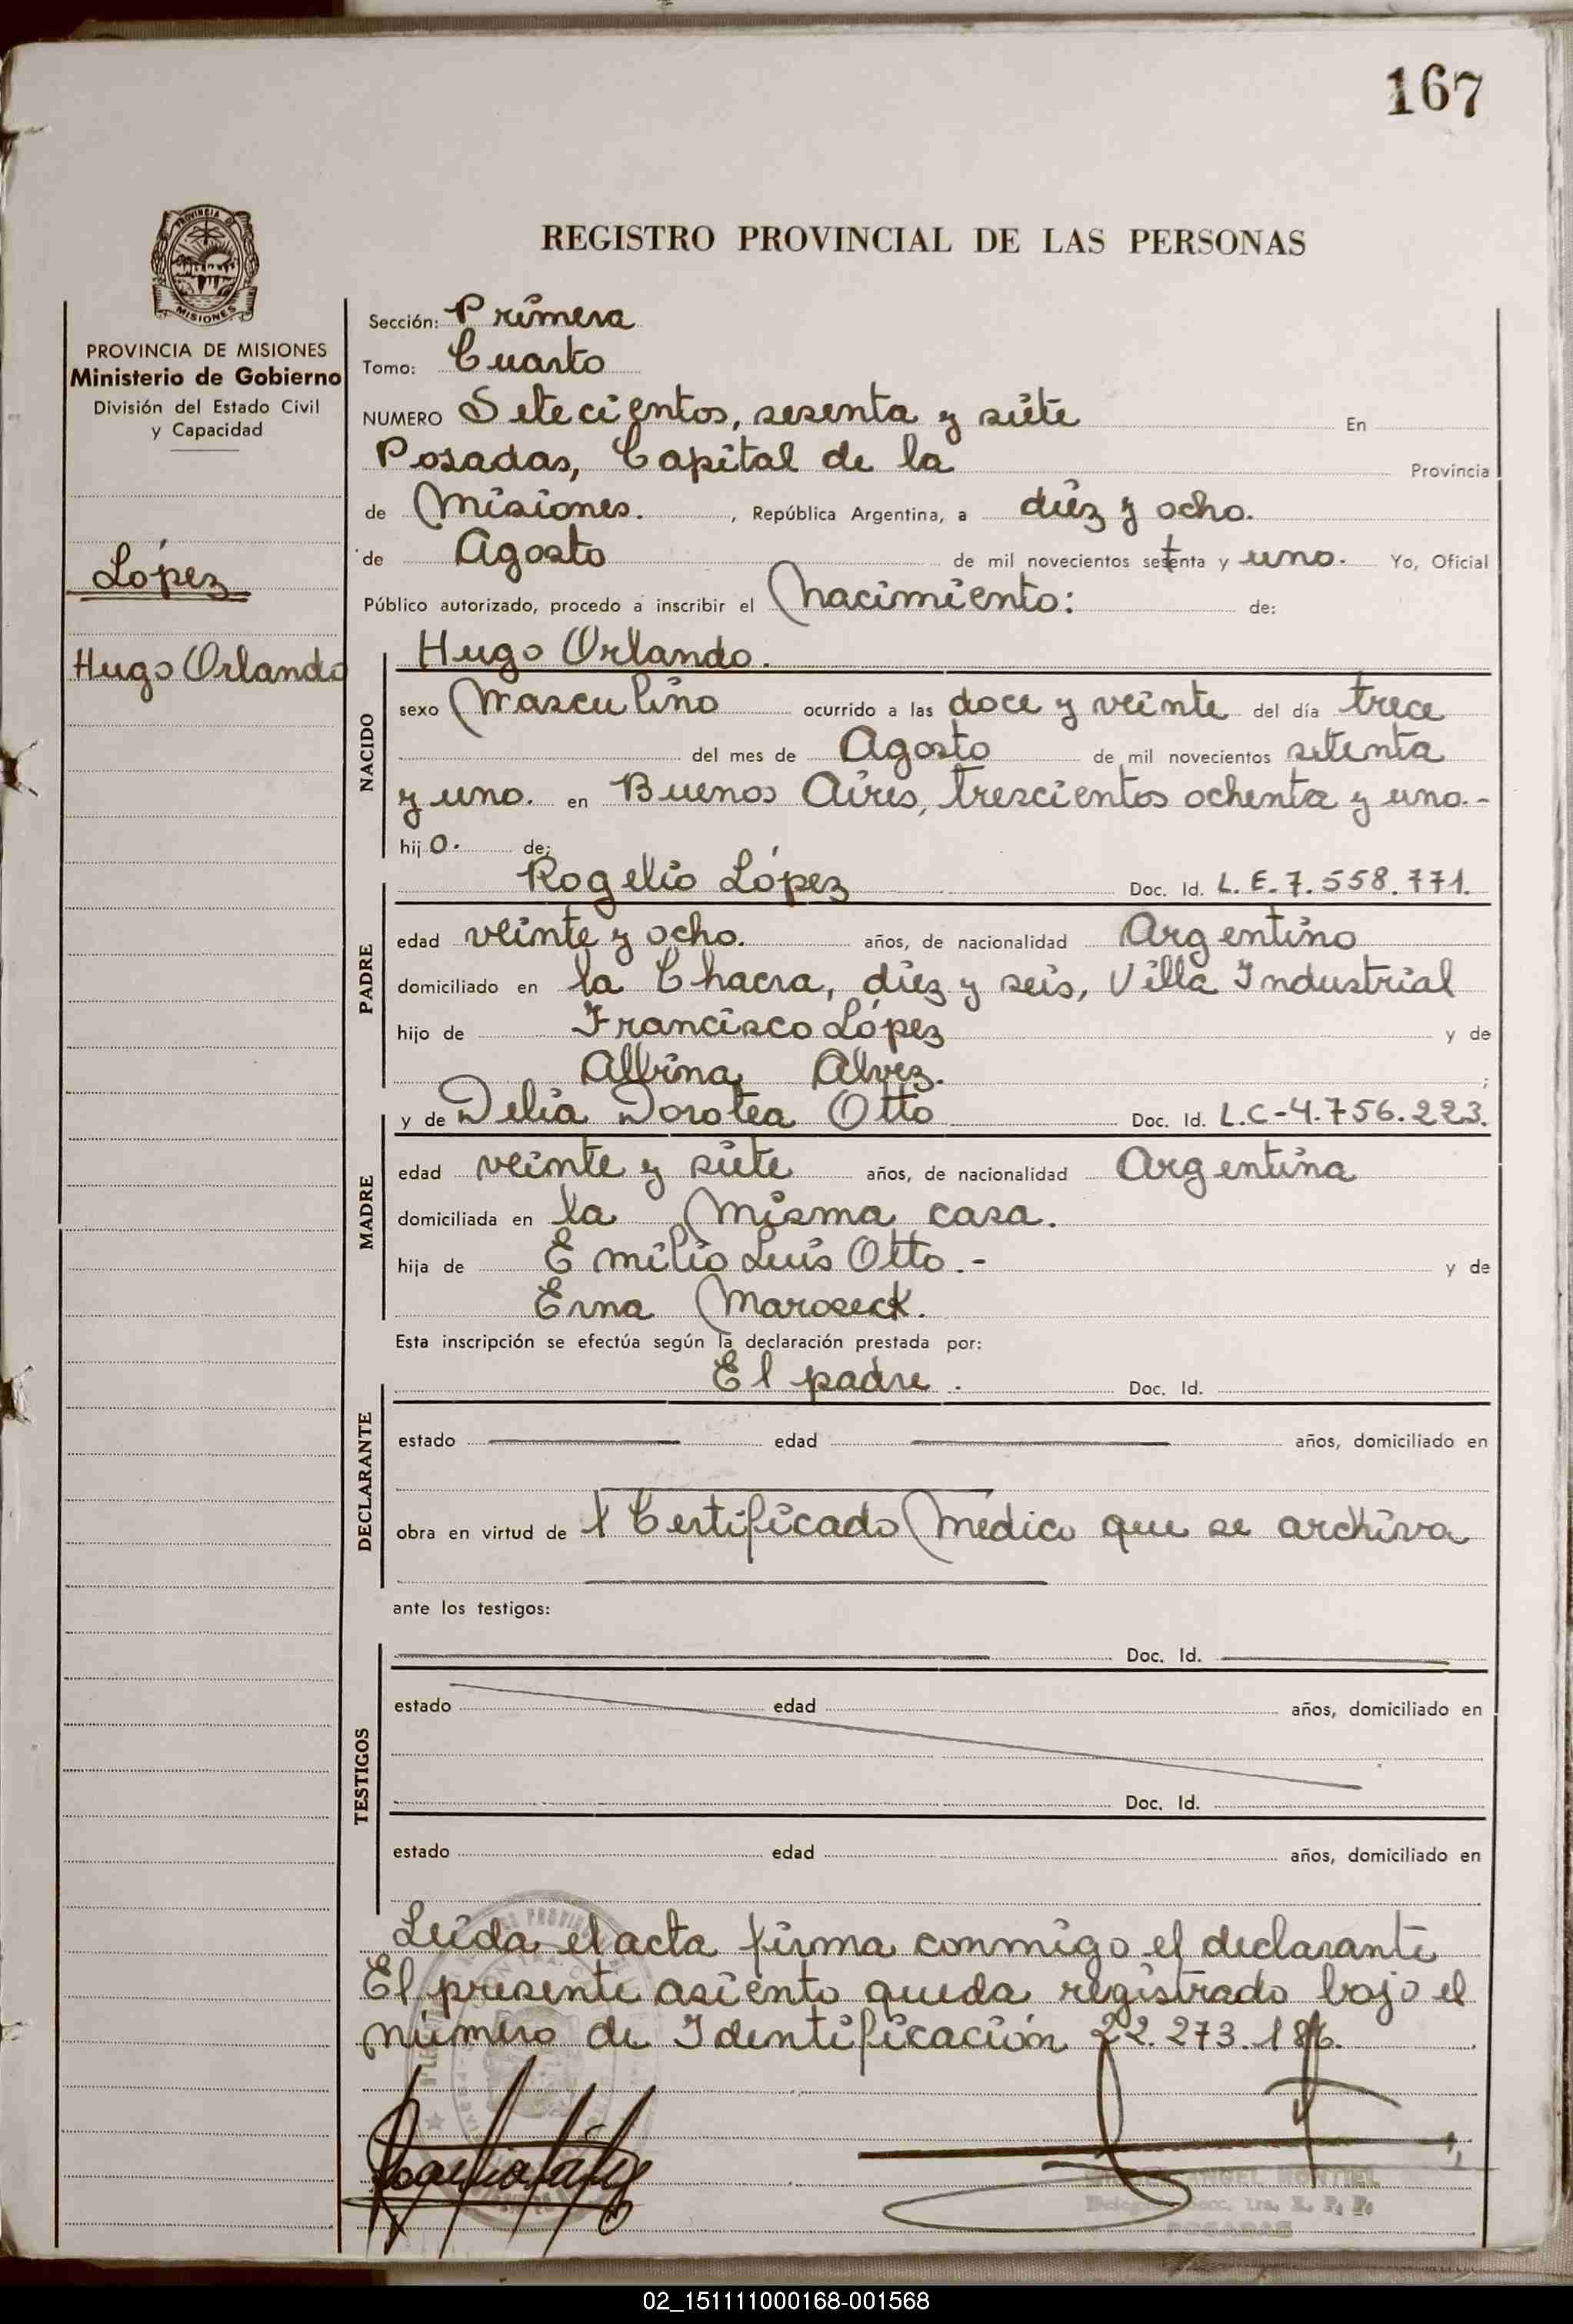 167
REGISTRO PROVINCIAL DE LAS PERSONAS
PROVINCIA DE MISIONES
PROVINCIA DE MISIONES
Ministerio de Gobierno
División del Estado Civil
y Capacidad
López
Hugo Orlando
Sección: Primera
Tomo: Cuarto
NUMERO Setecientos, sesenta y siete En
Posadas, Capital de la Provincia
de Misiones. , República Argentina, a diez y ocho.
de Agosto de mil novecientos setenta y uno. Yo, Oficial
Público autorizado, procedo a inscribir el Nacimiento: de:
NACIDO
Hugo Orlando.
sexo Masculino ocurrido a las doce y veinte del día trece
del mes de Agosto de mil novecientos setenta
y uno. en Buenos Aires, trescientos ochenta y uno.-
hijo. de:
PADRE
Rogelio López Doc. Id. L.E.7.558.771.
edad veinte y ocho. años, de nacionalidad Argentino
domiciliado en la Chacra, diez y seis, Villa Industrial
hijo de Francisco López y de
Albina Alvez. ;
MADRE
y de Delia Dorotea Otto Doc. Id. L.C-4.756.223.
edad veinte y siete años, de nacionalidad Argentina
domiciliada en la misma casa.
hija de Emilio Luis Otto.- y de
Erna Maroseck.
Esta inscripción se efectúa según la declaración prestada por:
DECLARANTE
El padre. Doc. Id.
estado edad años, domiciliado en
obra en virtud de 1 Certificado Médico que se archiva
ante los testigos:
TESTIGOS
Doc. Id.
estado edad años, domiciliado en
Doc. Id.
estado edad años, domiciliado en
Leída el acta firma conmigo el declarante
El presente asiento queda registrado bajo el
número de Identificación 22.273.186.
ANGEL
POSADAS
02_151111000168-001568